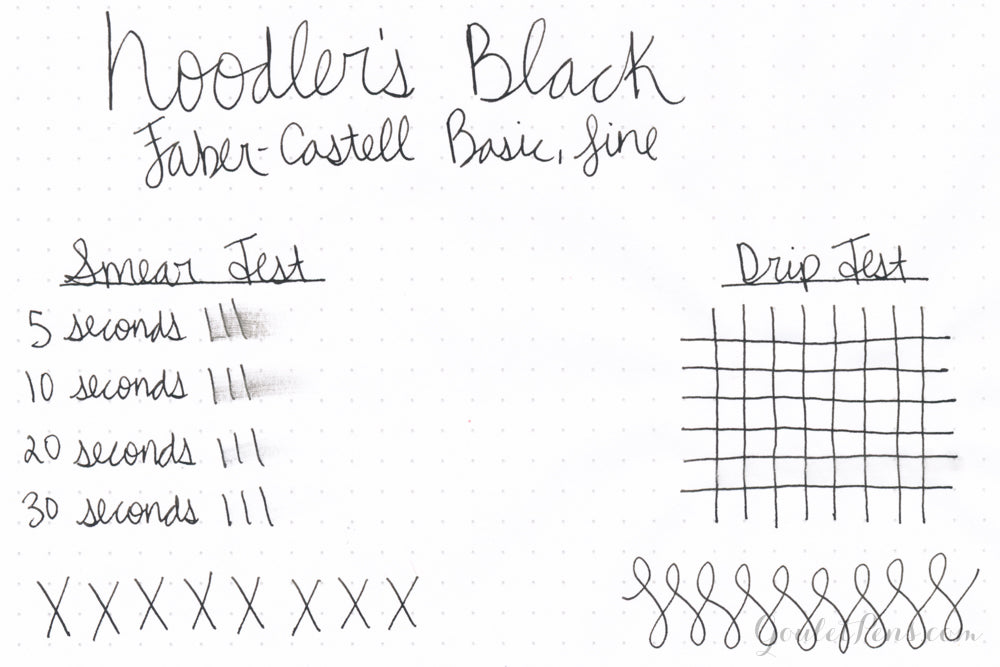 Noodler's Black
Faber-Castell Basic, fine
Smear Test
5 seconds
10 seconds
20 seconds
30 seconds
X X X X X X X X
Drip Test
GouletPens.com